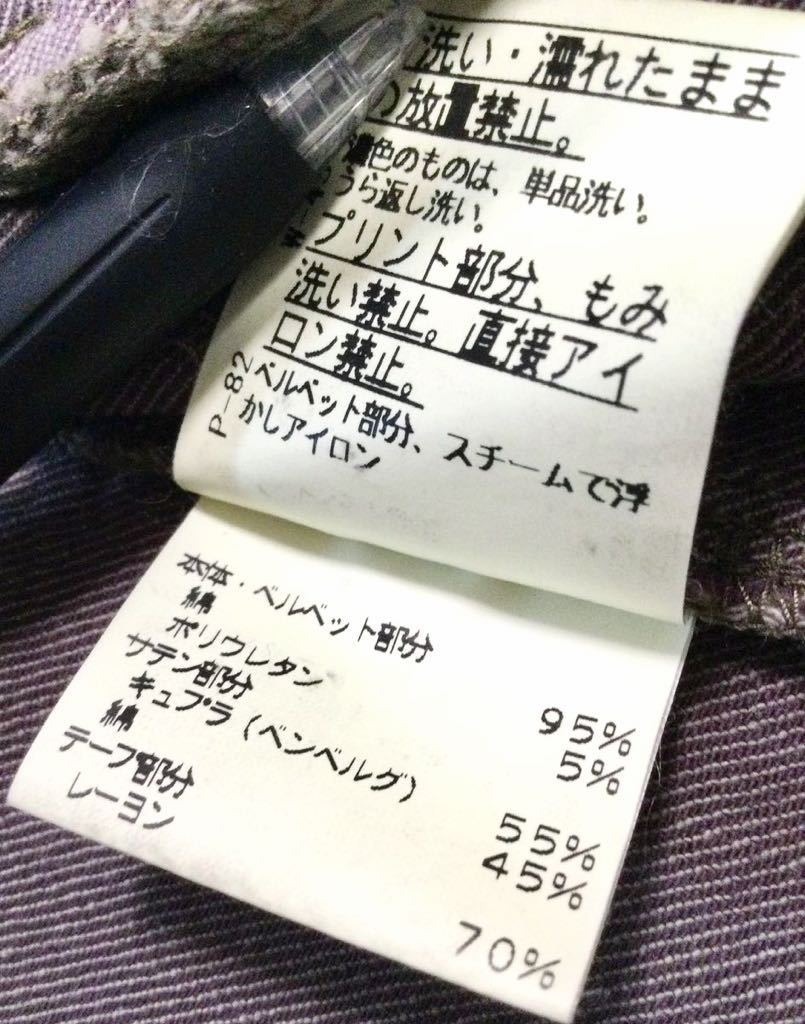 洗い・濡れたまま
の放置禁止。
濃色のものは、単品洗い。
うら返し洗い。
プリント部分、もみ
洗い禁止。直接アイ
ロン禁止。
P-82
ベルベット部分、スチームで浮
かしアイロン
本体・ベルベット部分
綿 95%
ポリウレタン 5%
サテン部分
キュプラ(ベンベルグ) 55%
綿 45%
テープ部分
レーヨン 70%